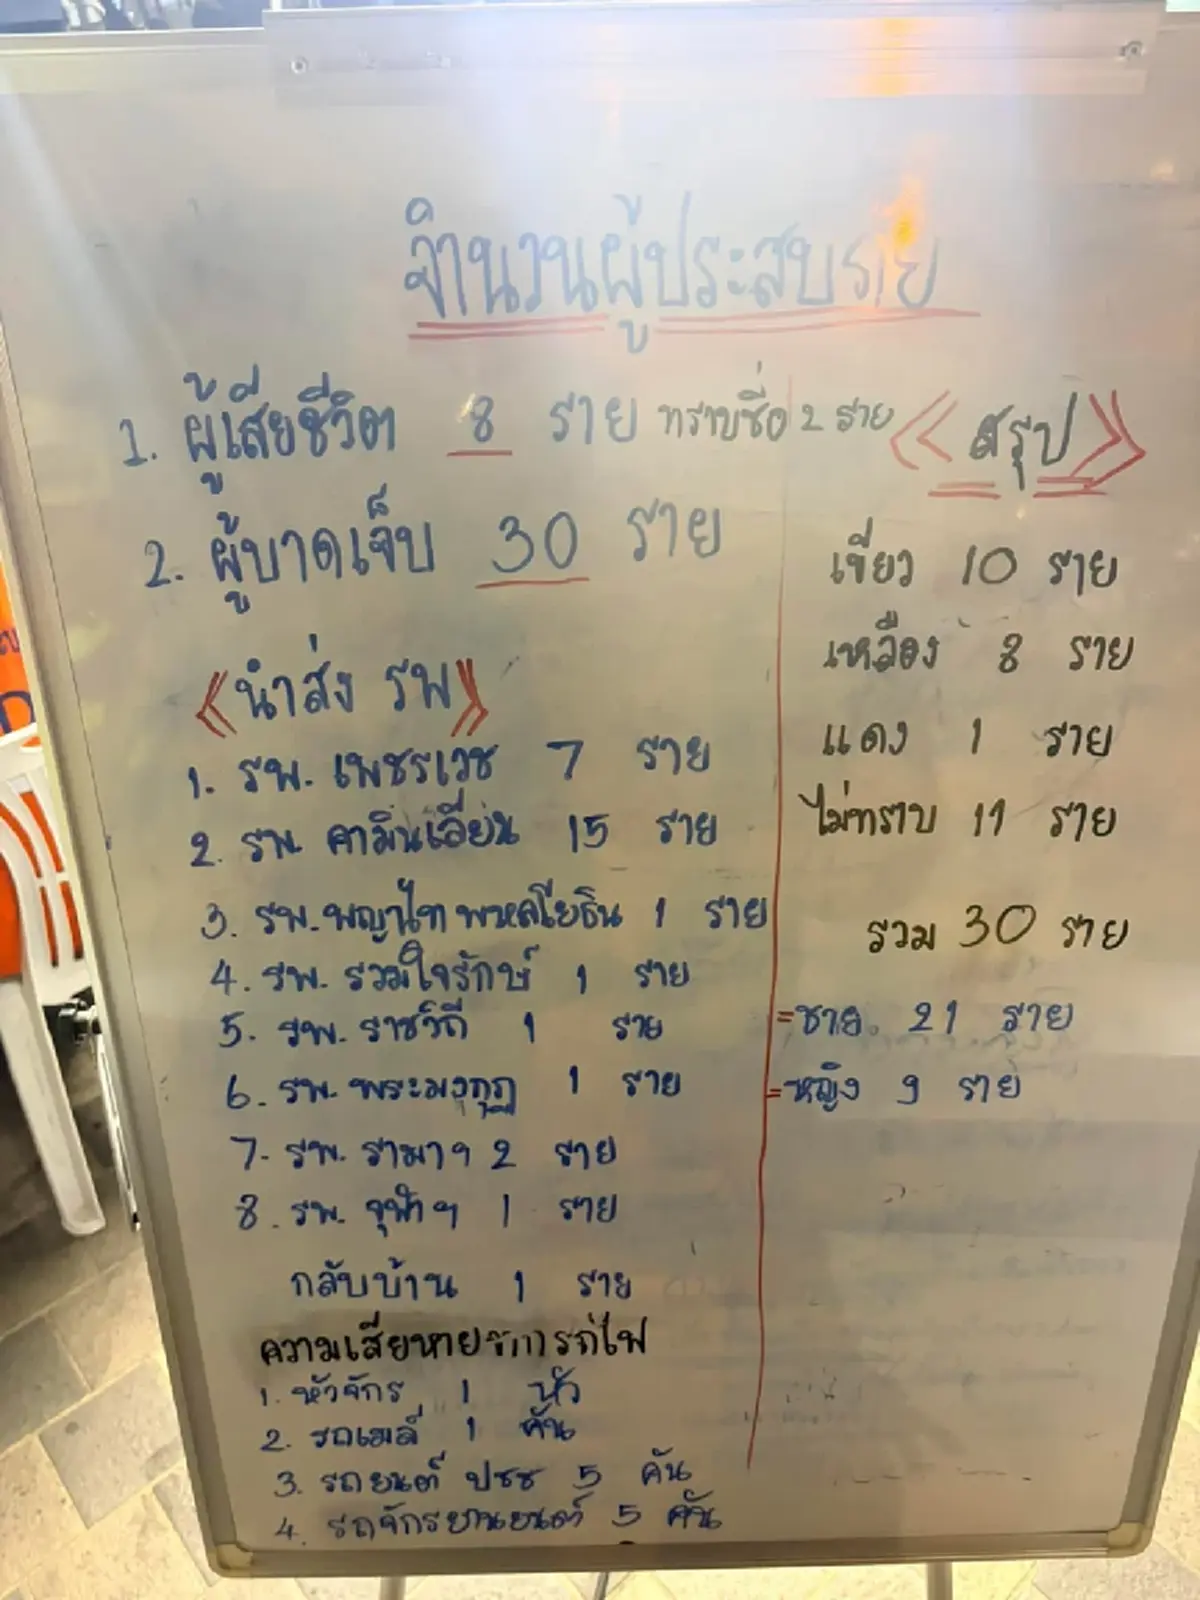 จำนวนผู้ประสบภัย
1. ผู้เสียชีวิต 8 ราย ทราบชื่อ 2 ราย
2. ผู้บาดเจ็บ 30 ราย
《นำส่ง รพ》
1. รพ. เพชรเวช 7 ราย
2. รพ คามิลเลียน 15 ราย
3. รพ. พญาไท พหลโยธิน 1 ราย
4. รพ. รวมใจรักษ์ 1 ราย
5. รพ. ราชวิถี 1 ราย
6. รพ. พระมงกุฎ 1 ราย
7. รพ. รามาฯ 2 ราย
8. รพ. จุฬาฯ 1 ราย
กลับบ้าน 1 ราย
ความเสียหาย รถไฟ
1. หัวจักร 1 หัว
2. รถเมล์ 1 คัน
3. รถยนต์ ปชช 5 คัน
4. รถจักรยานยนต์ 5 คัน
《สรุป》
เขียว 10 ราย
เหลือง 8 ราย
แดง 1 ราย
ไม่ทราบ 11 ราย
รวม 30 ราย
= ชาย. 21 ราย
= หญิง 9 ราย